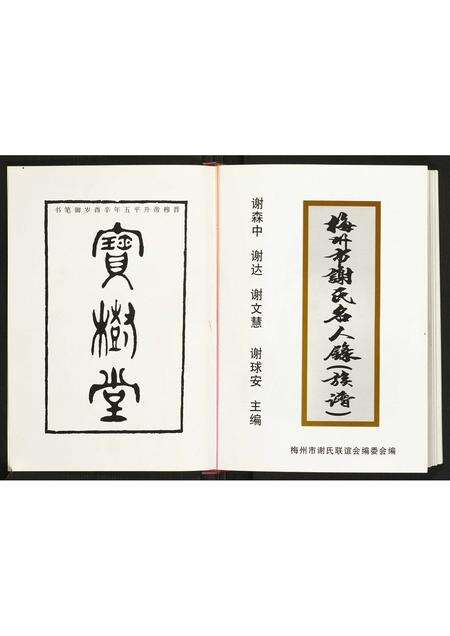 晋穆帝升平五年辛酉岁御笔书
寳樹堂
梅州市謝氏名人錄(族谱)
谢森中 谢达 谢文慧 谢球安 主编
梅州市谢氏联谊会编委会编